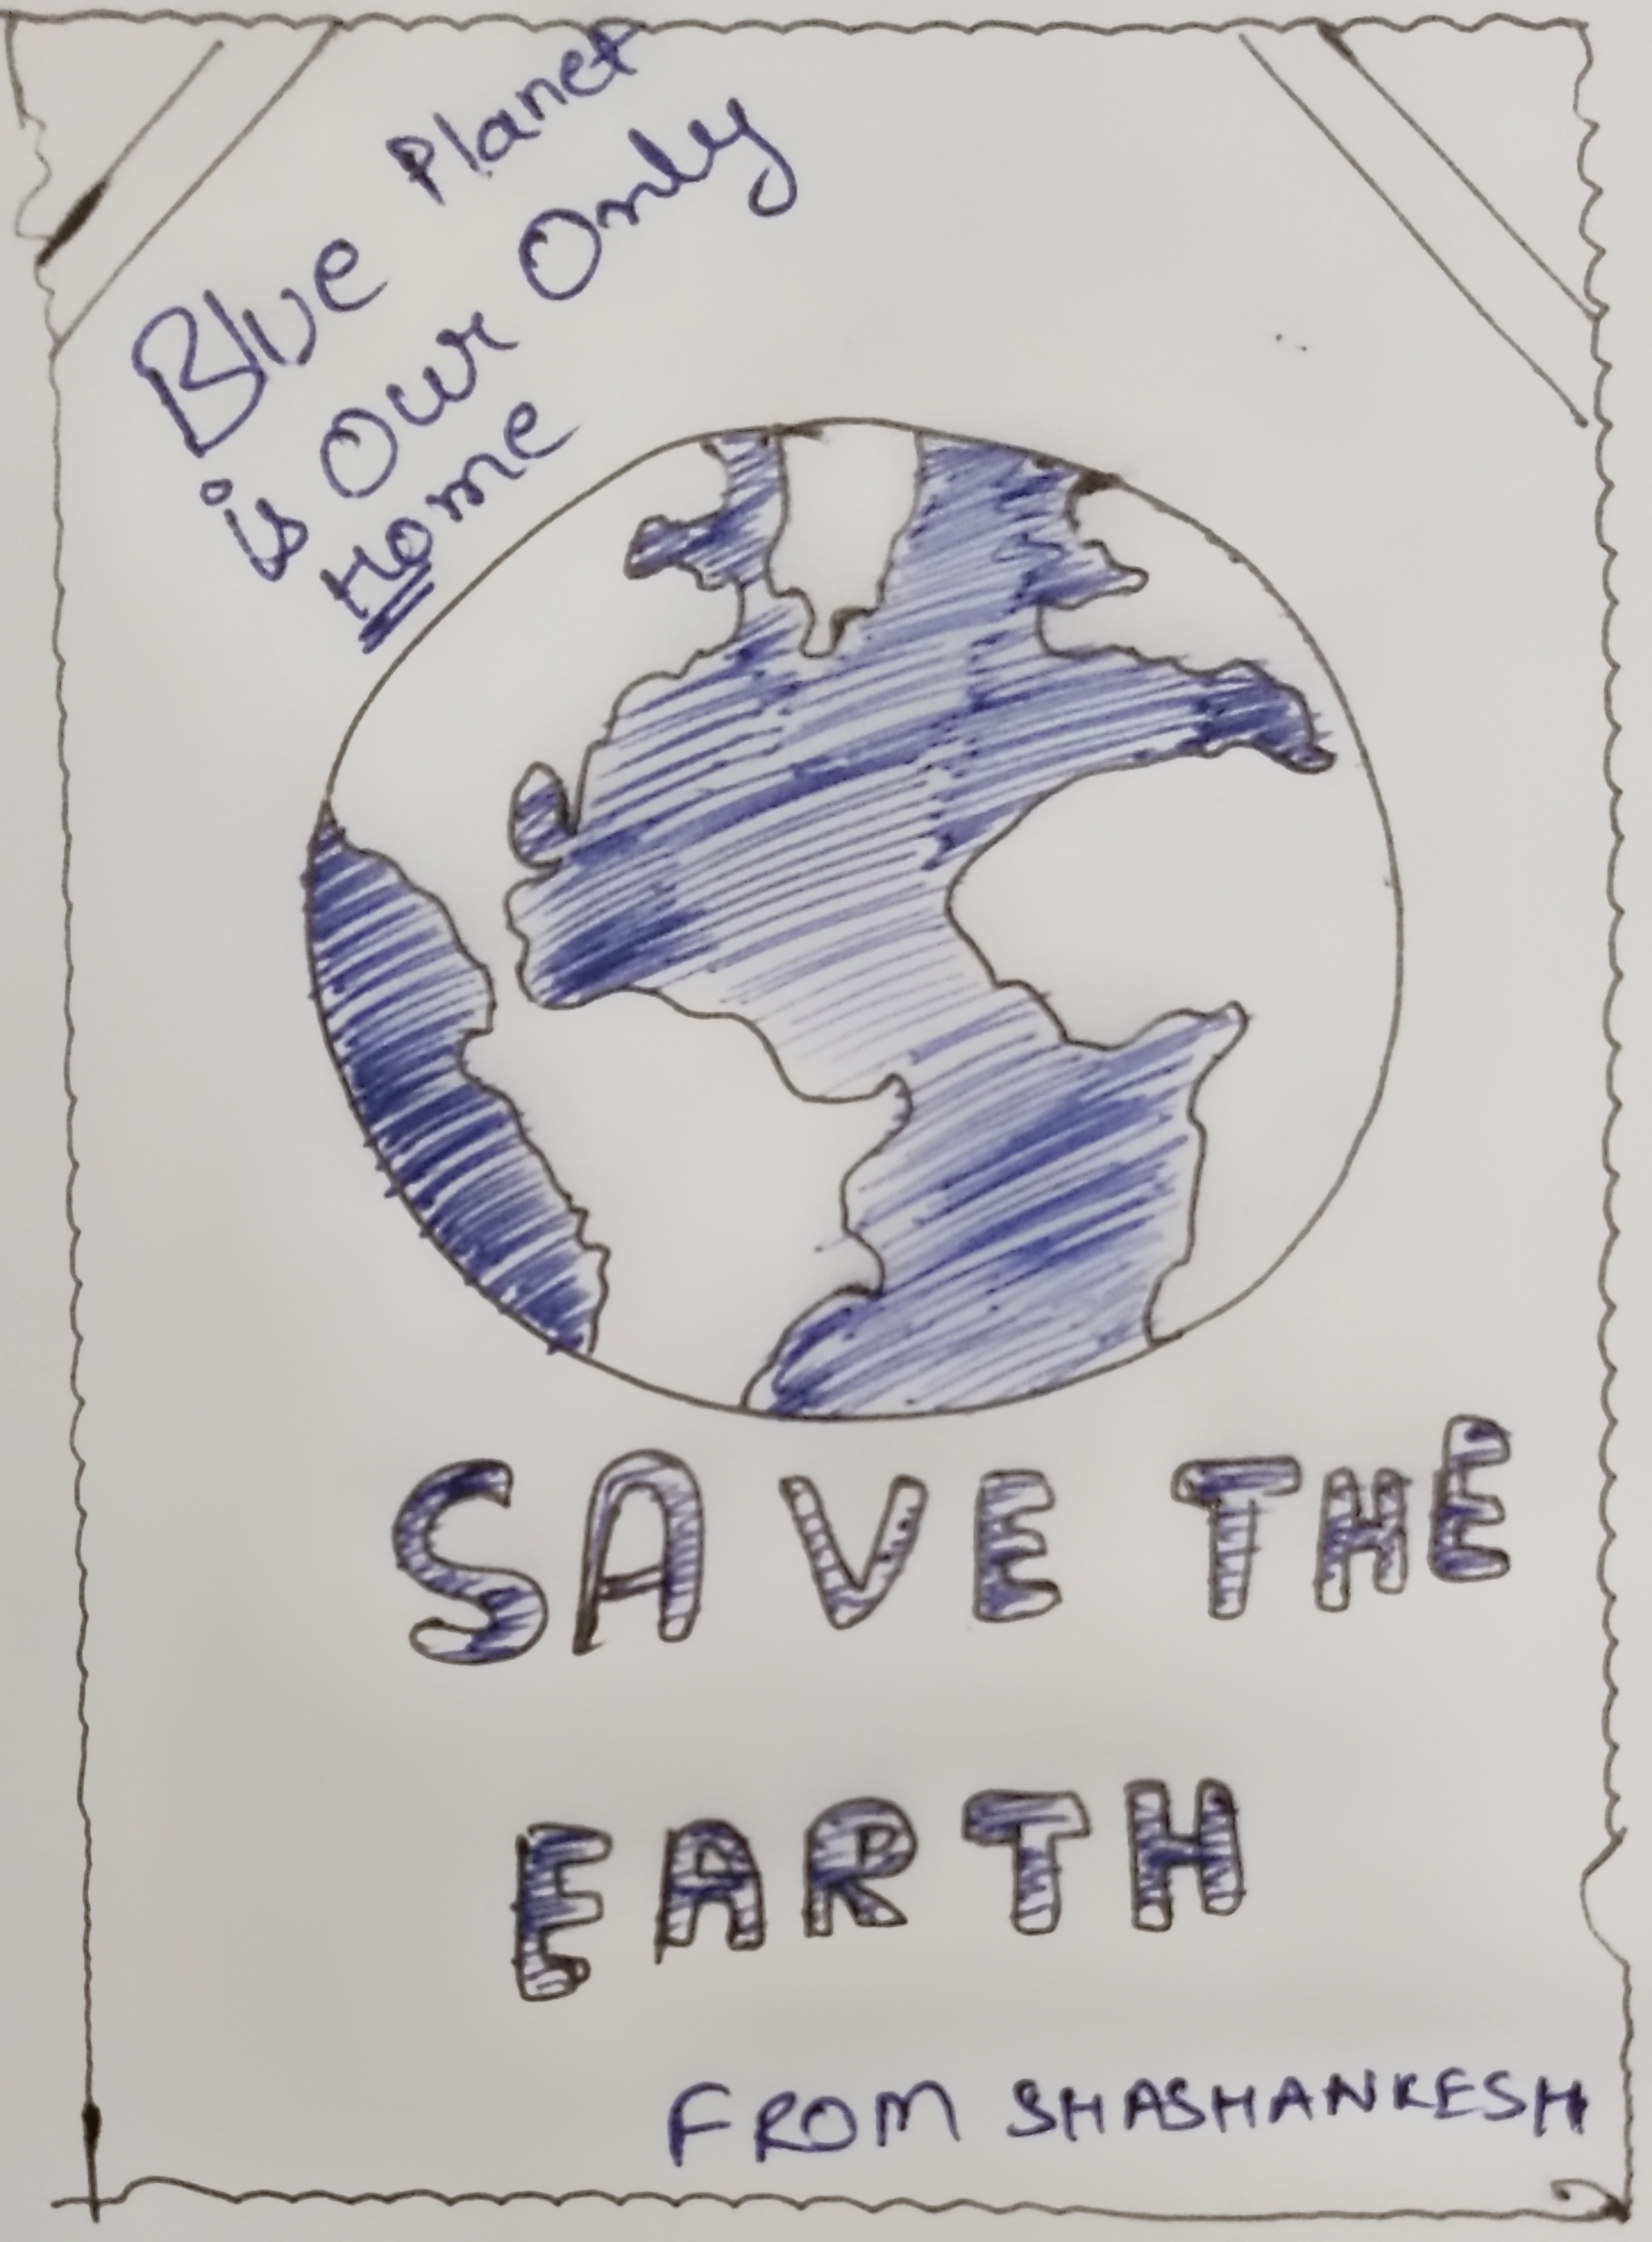 Blue Planet
is Our Only
Home
SAVE THE
EARTH
FROM SHASHANKESH